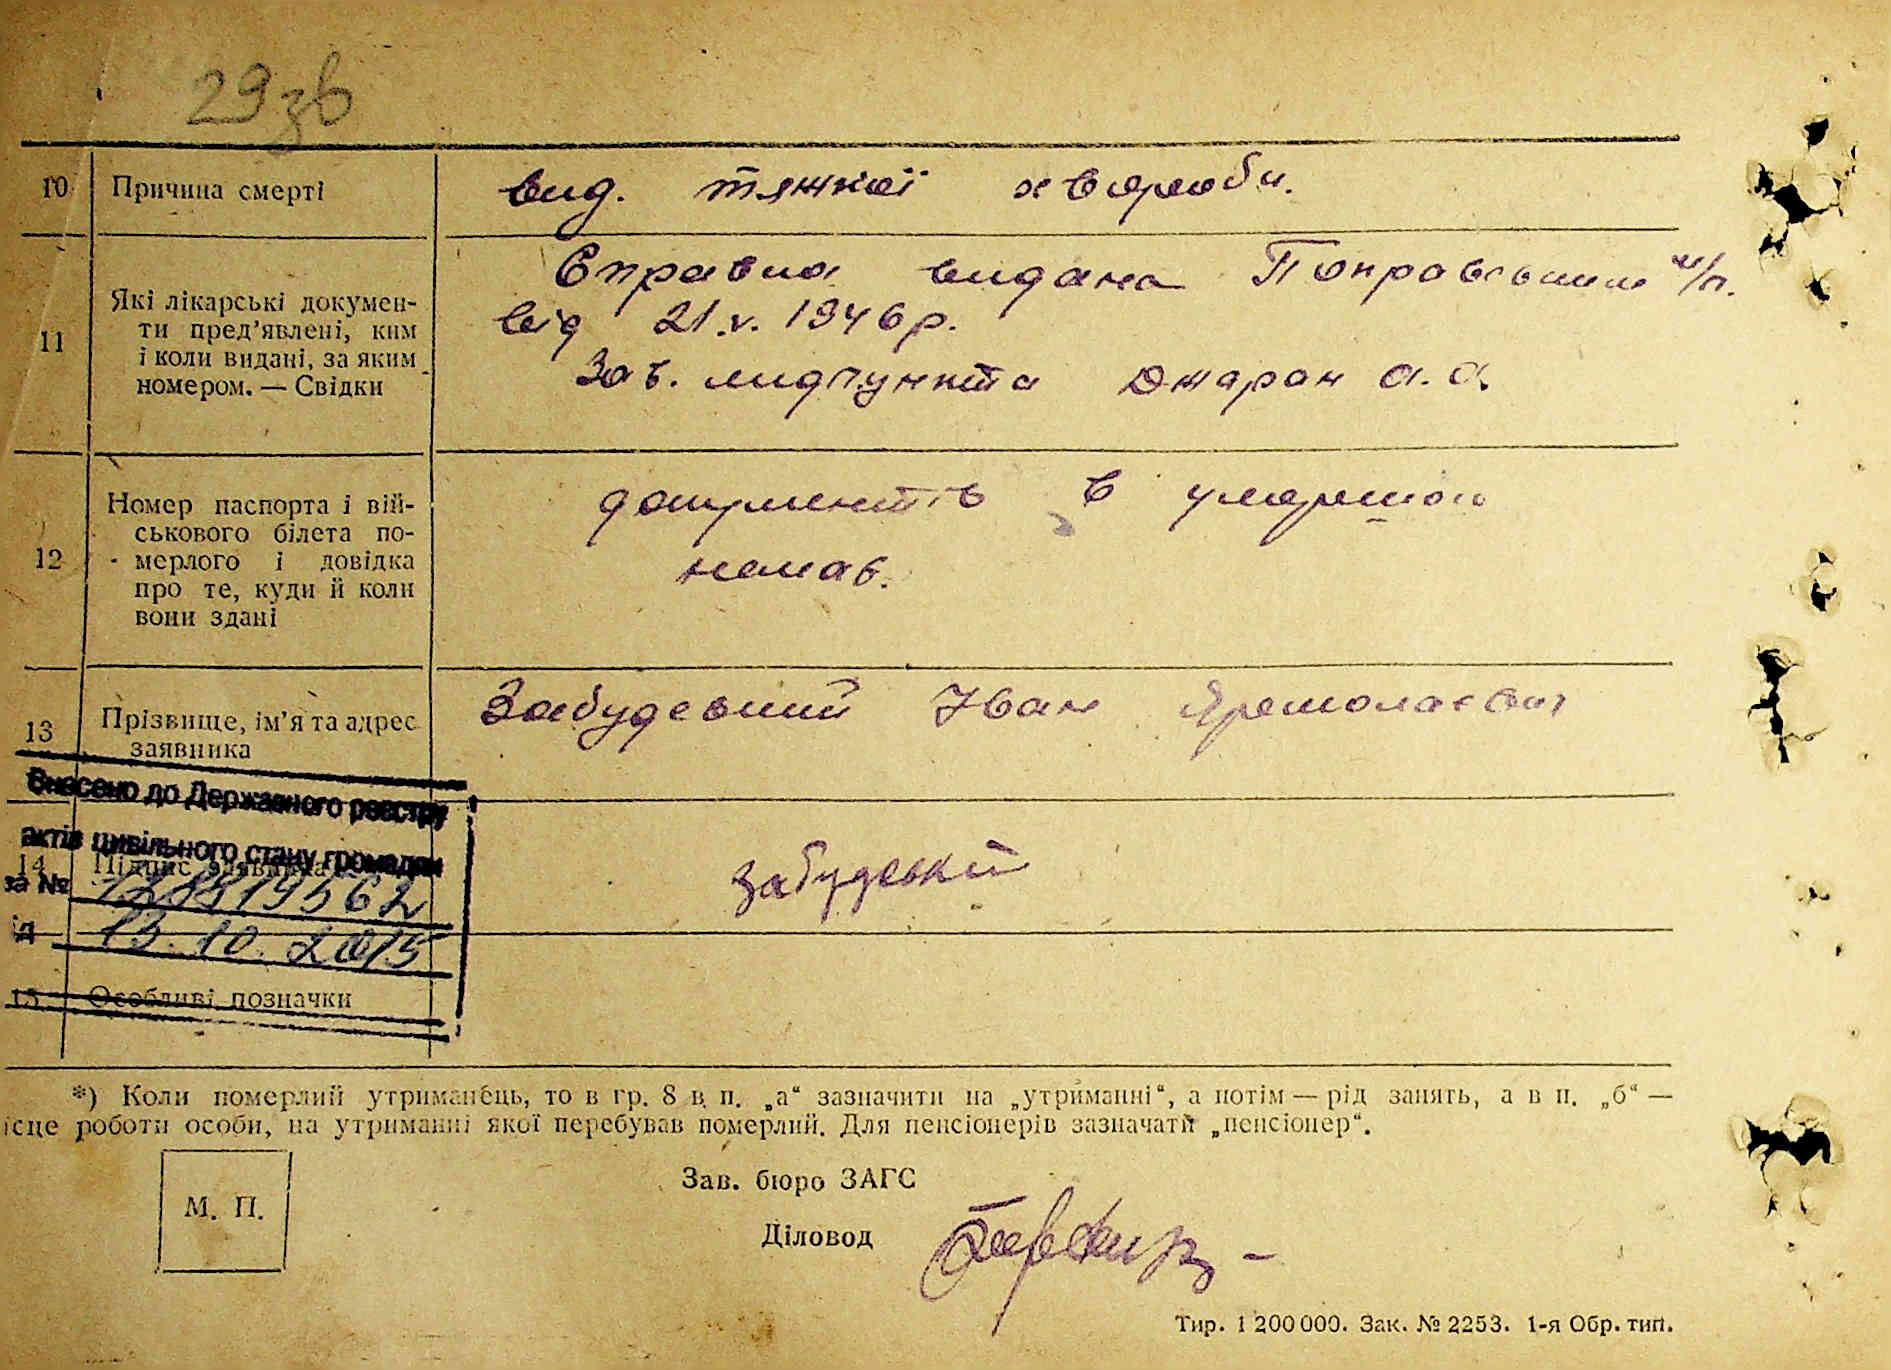 29 зв
10 Причина смерті вид. тяжкої хвороби.
Справка видана Покровським м/п.
від 21.V.1946 р.
Зав. мидпункта Джаран А.А.
11 Які лікарські докумен-
ти пред’явлені, ким
і коли видані, за яким
номером. — Свідки
документів в умершой
немає.
12 Номер паспорта і вій-
ськового білета по-
мерлого і довідка
про те, куди й коли
вони здані
Забудський Іван
13 Прізвище, ім’я та адрес
заявника
Внесено до Державного реєстру
актів цивільного стану громадян
14 Підпис заявника забудський
за № 12881956
від 13.10.2015
15 Особливі позначки
*) Коли померлий утриманець, то в гр. 8 в п. „а“ зазначити на „утриманні“, а потім — рід занять, а в п. „б“ —
ісце роботи особи, на утриманні якої перебував померлий. Для пенсіонерів зазначати „пенсіонер“.
М. П.
Зав. бюро ЗАГС
Діловод
Тир. 1 200 000. Зак. № 2253. 1-я Обр. тип.